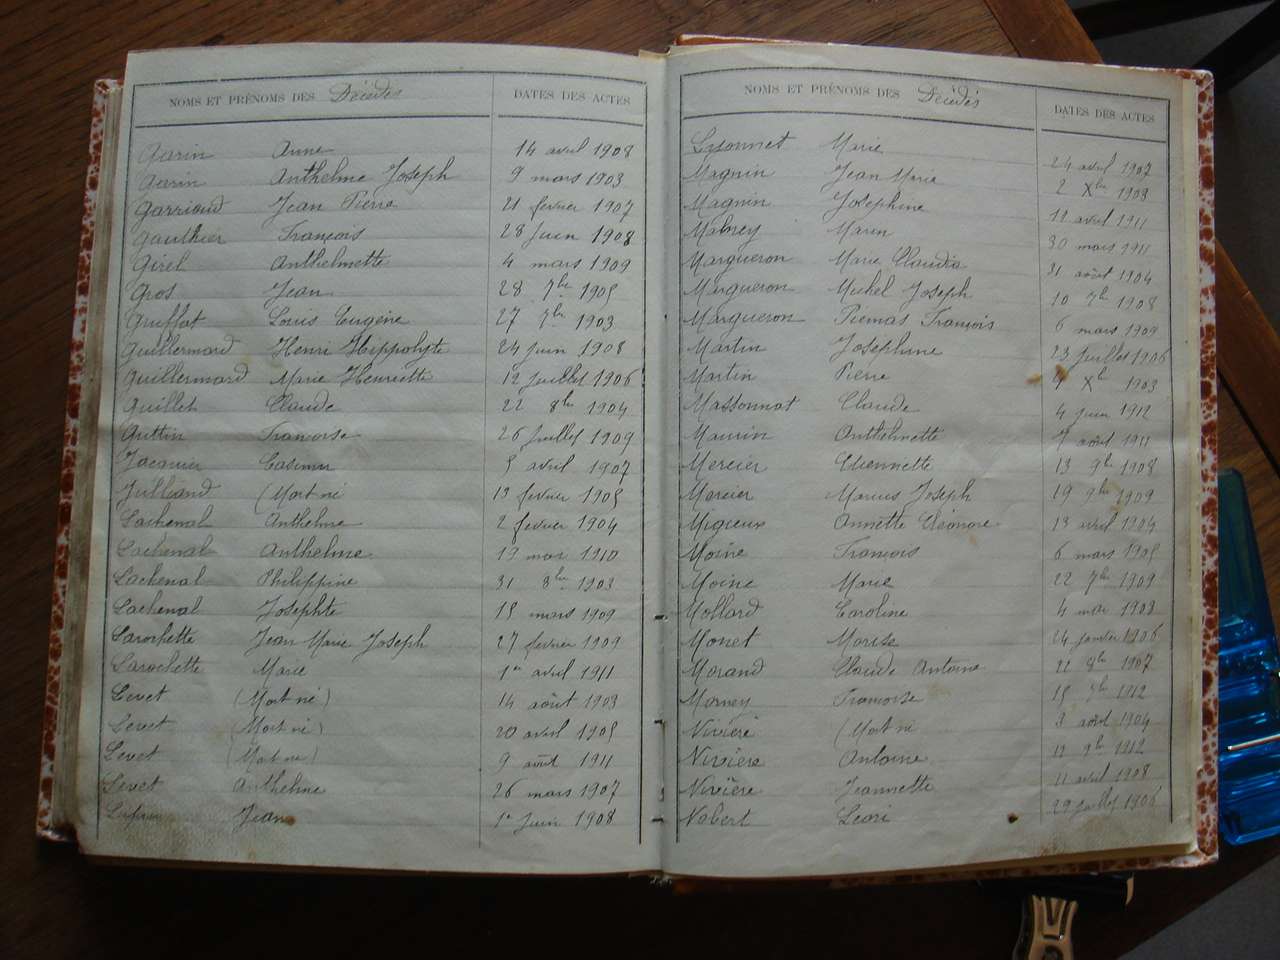 NOMS ET PRÉNOMS DES Décédés DATES DES ACTES
Garin Anne 14 avril 1908
Garin Anthelme Joseph 9 mars 1903
Garrioud Jean Pierre 21 fevrier 1907
Gauthier François 28 Juin 1908
Girel Anthelmette 4 mars 1909
Gros Jean 28 7bre 1905
Guiffat Louis Eugène 27 7bre 1903
Guillermard Henri Hippolyte 24 Juin 1908
Guillermard Marie Henriette 12 Juillet 1906
Guillet Claude 22 8bre 1904
Guttin Françoise 26 Juillet 1909
Jacquier Casimir 5 avril 1907
Julliand (Mort né 13 fevrier 1905
Lachenal Anthelme 2 fevrier 1904
Lachenal Anthelme 13 mai 1910
Lachenal Philippine 31 8bre 1903
Lachenal Josephte 15 mars 1909
Larochette Jean Marie Joseph 27 fevrier 1909
Larochette Marie 1er avril 1911
Levet (Mort né) 14 août 1903
Levet (Mort né) 20 avril 1905
Levet (Mort né) 9 août 1911
Levet Anthelme 26 mars 1907
Jean 1er Juin 1908
NOMS ET PRÉNOMS DES Décédés DATES DES ACTES
Lyonnet Marie 24 avril 1907
Magnin Jean Marie 2 Xbre 1903
Magnin Josephine 12 avril 1911
Mabrey Marin 30 mars 1911
Margueron Marie Claudia 31 août 1904
Margueron Michel Joseph 10 7bre 1908
Margueron François 6 mars 1909
Martin Josephine 23 Juillet 1906
Martin Pierre 9 Xbre 1903
Massonnat Claude 4 Juin 1912
Maurin Anthelmette 7 août 1911
Mercier Etiennette 13 9bre 1908
Mercier Marius Joseph 19 9bre 1909
Migieux Annette Eléonore 13 avril 1904
Moine François 6 mars 1905
Moine Marie 22 7bre 1909
Mollard Caroline 4 mai 1903
Monet Morise 24 janvier 1906
Morand Claude Antoine 21 8bre 1907
Morney Françoise 15 7bre 1912
Nivière (Mort né 3 août 1904
Nivière Antoine 12 9bre 1912
Nivière Jeannette 11 avril 1908
Nobert Léon 29 Juillet 1906